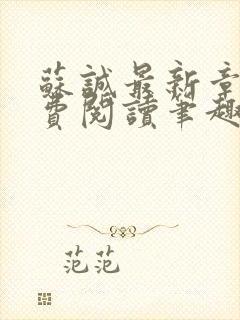 蘇誠最新章
費閱讀筆趣
范范